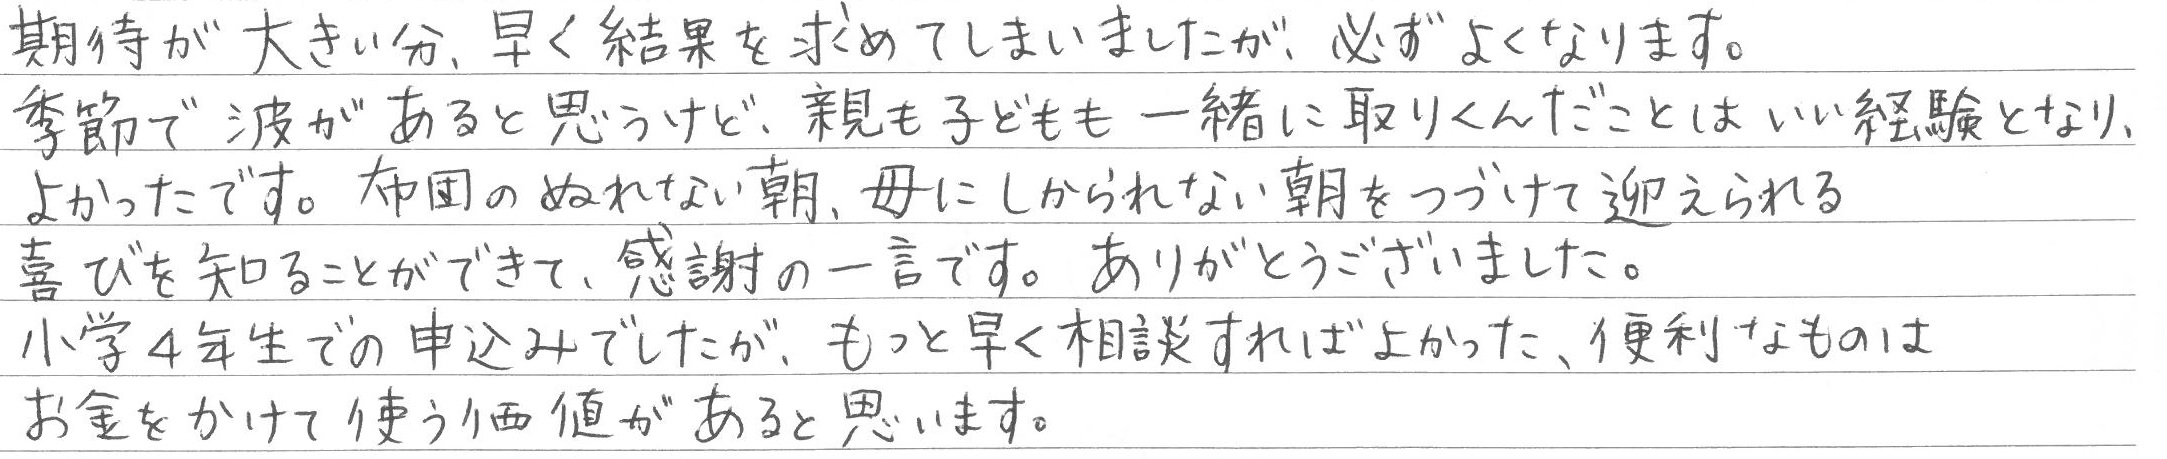 期待が大きい分、早く結果を求めてしまいましたが、必ずよくなります。
季節で波があると思うけど、親も子どもも一緒に取りくんだことはいい経験となり、
よかったです。布団のぬれない朝、母にしかられない朝をつづけて迎えられる
喜びを知ることができて、感謝の一言です。ありがとうございました。
小学4年生での申込みでしたが、もっと早く相談すればよかった、便利なものは
お金をかけて使う価値があると思います。